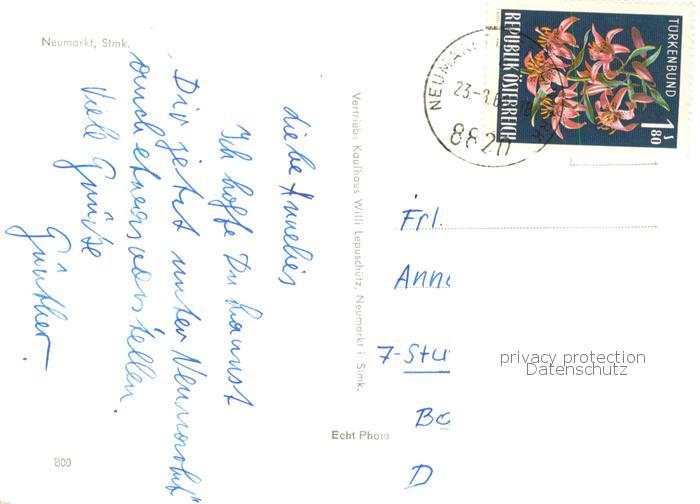 Neumarkt, Stmk.
Liebe Annelies
Ich hoffe Du kannst
Dir jetzt unter "Neumarkt"
auch etwas vorstellen.
Viele Grüße
Günther.
800
Vertrieb: Kaufhaus Willi Lepuschütz, Neumarkt i. Stmk.
Echt Photo
REPUBLIK ÖSTERREICH
TÜRKENBUND
1 S
80
8820
Frl.
7-Stu
D
privacy protection
Datenschutz